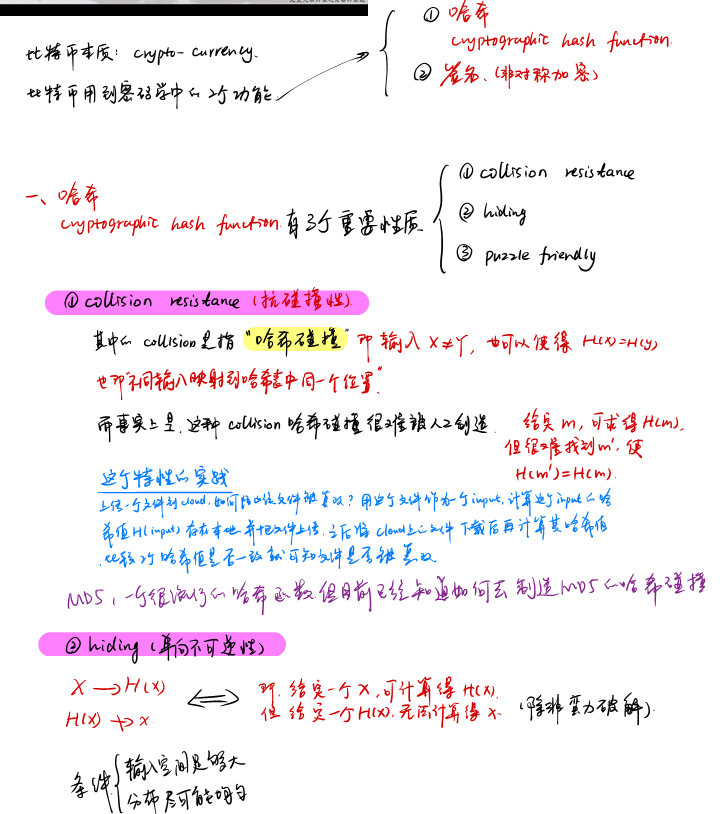 比特币本质：crypto-currency.
比特币用到密码学中的2个功能
① 哈希
cryptographic hash function.
② 签名、(非对称加密)
一、哈希
cryptographic hash function. 有3个重要性质
① collision resistance
② hiding
③ puzzle friendly
① collision resistance (抗碰撞性).
其中的 collision是指 "哈希碰撞" 即 输入 X≠Y, 也可以使得 H(x)=H(y)
也即"不同输入映射到哈希表中同一个位置".
而事实上是，这种 collision 哈希碰撞 很难被人工制造.
给定 m, 可求得H(m),
但很难找到m', 使
H(m')=H(m).
这个特性的实践
上传一个文件到cloud, 如何防止该文件被篡改? 用这个文件作为一个input, 计算这个input的哈
希值H(input) 存在本地 并把文件上传. 之后将cloud上的文件下载后再计算其哈希值
, 比较2个哈希值是否一致 就可知文件是否被篡改
MD5, 一个很流行的哈希函数 但目前已经知道如何去制造MD5的哈希碰撞
② hiding (单向不可逆性)
X → H(X)
H(X) ↛ x
即. 给定一个X, 可计算得 H(X).
但 给定一个H(X). 无法计算得 x. (除非 蛮力破解).
条件
输入空间足够大
分布尽可能均匀